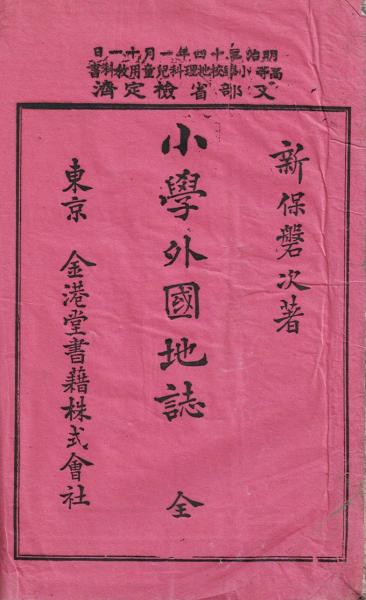 明治三十四年一月十一日
高等小學校地理科兒童用教科書
文部省檢定濟
新保磐次著
小學外國地誌 全
東京 金港堂書籍株式會社